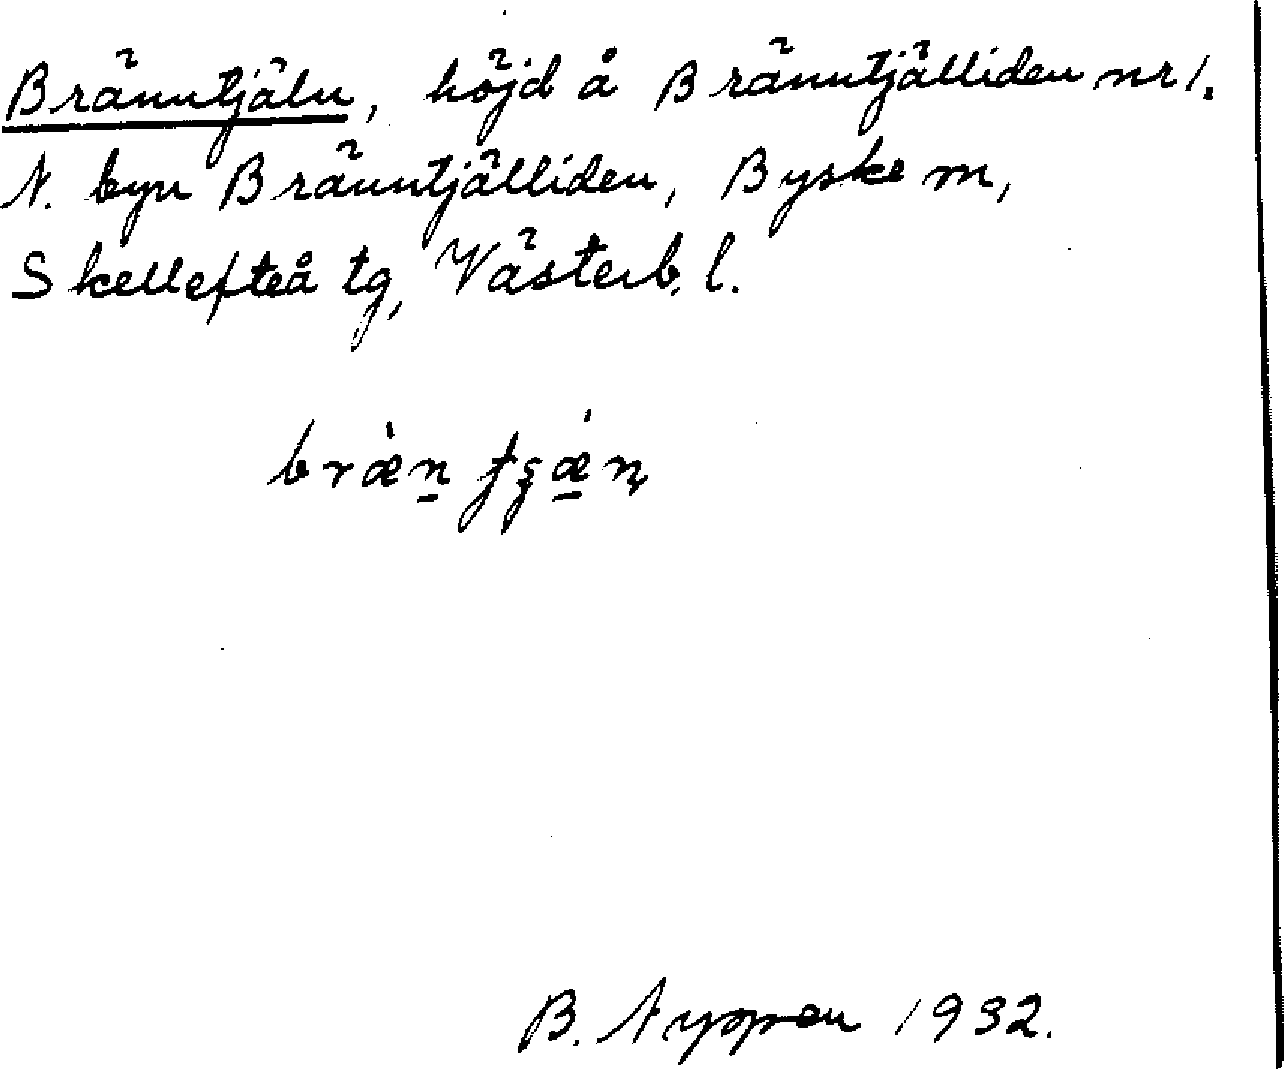 Bränntjäln, höjd å Bränntjälliden nr 1.
N. byn Bränntjälliden, Byske sn,
Skellefteå tg, Västerb. l.
B. 1932.